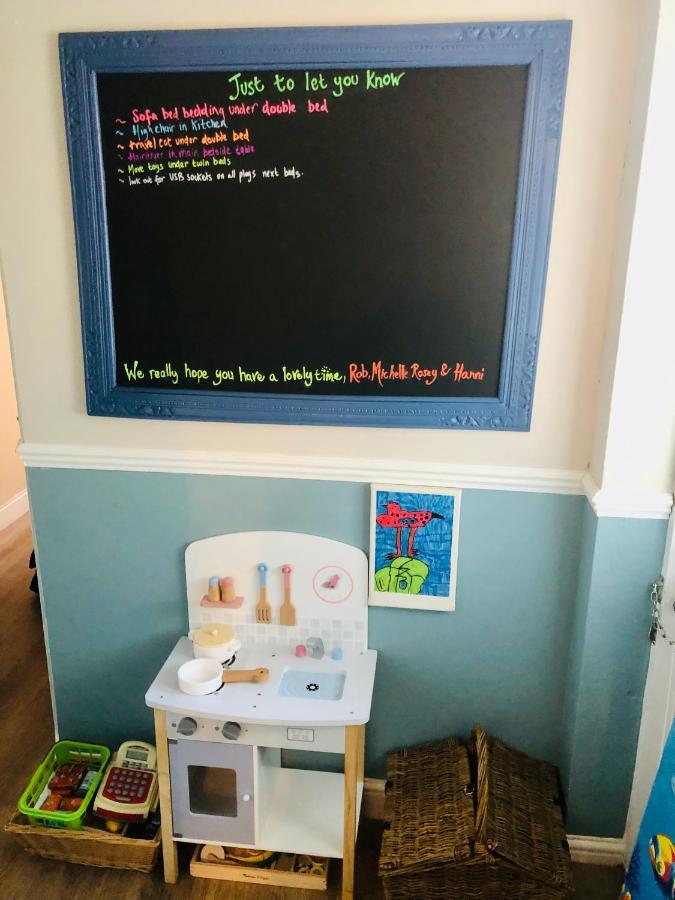 Just to let you know
~ Sofa bed bedding under double bed
~ Highchair in kitchen
~ travel cot under double bed
~ Hairdryer in main bedside table
~ More toys under twin beds
~ look out for USB sockets on all plugs next beds.
We really hope you have a lovely time, Rob, Michelle Rosey & Hanni